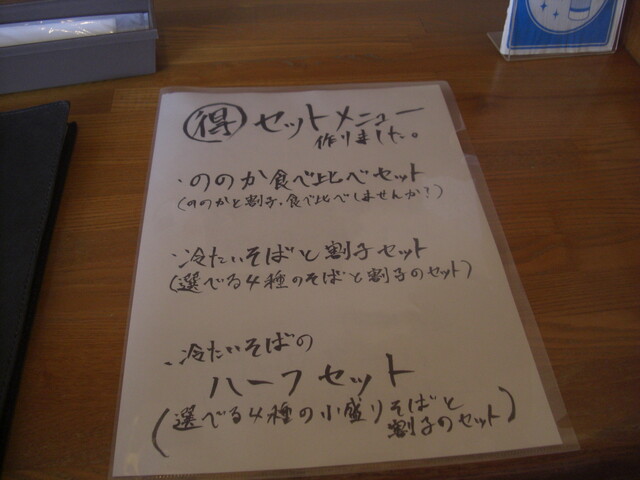 得 セットメニュー
作りました。
・ののか食べ比べセット
(ののかと割子、食べ比べしませんか?)
・冷たいそばと割子セット
(選べる4種のそばと割子のセット)
・冷たいそばの
ハーフセット
(選べる4種の小盛りそばと
割子のセット)